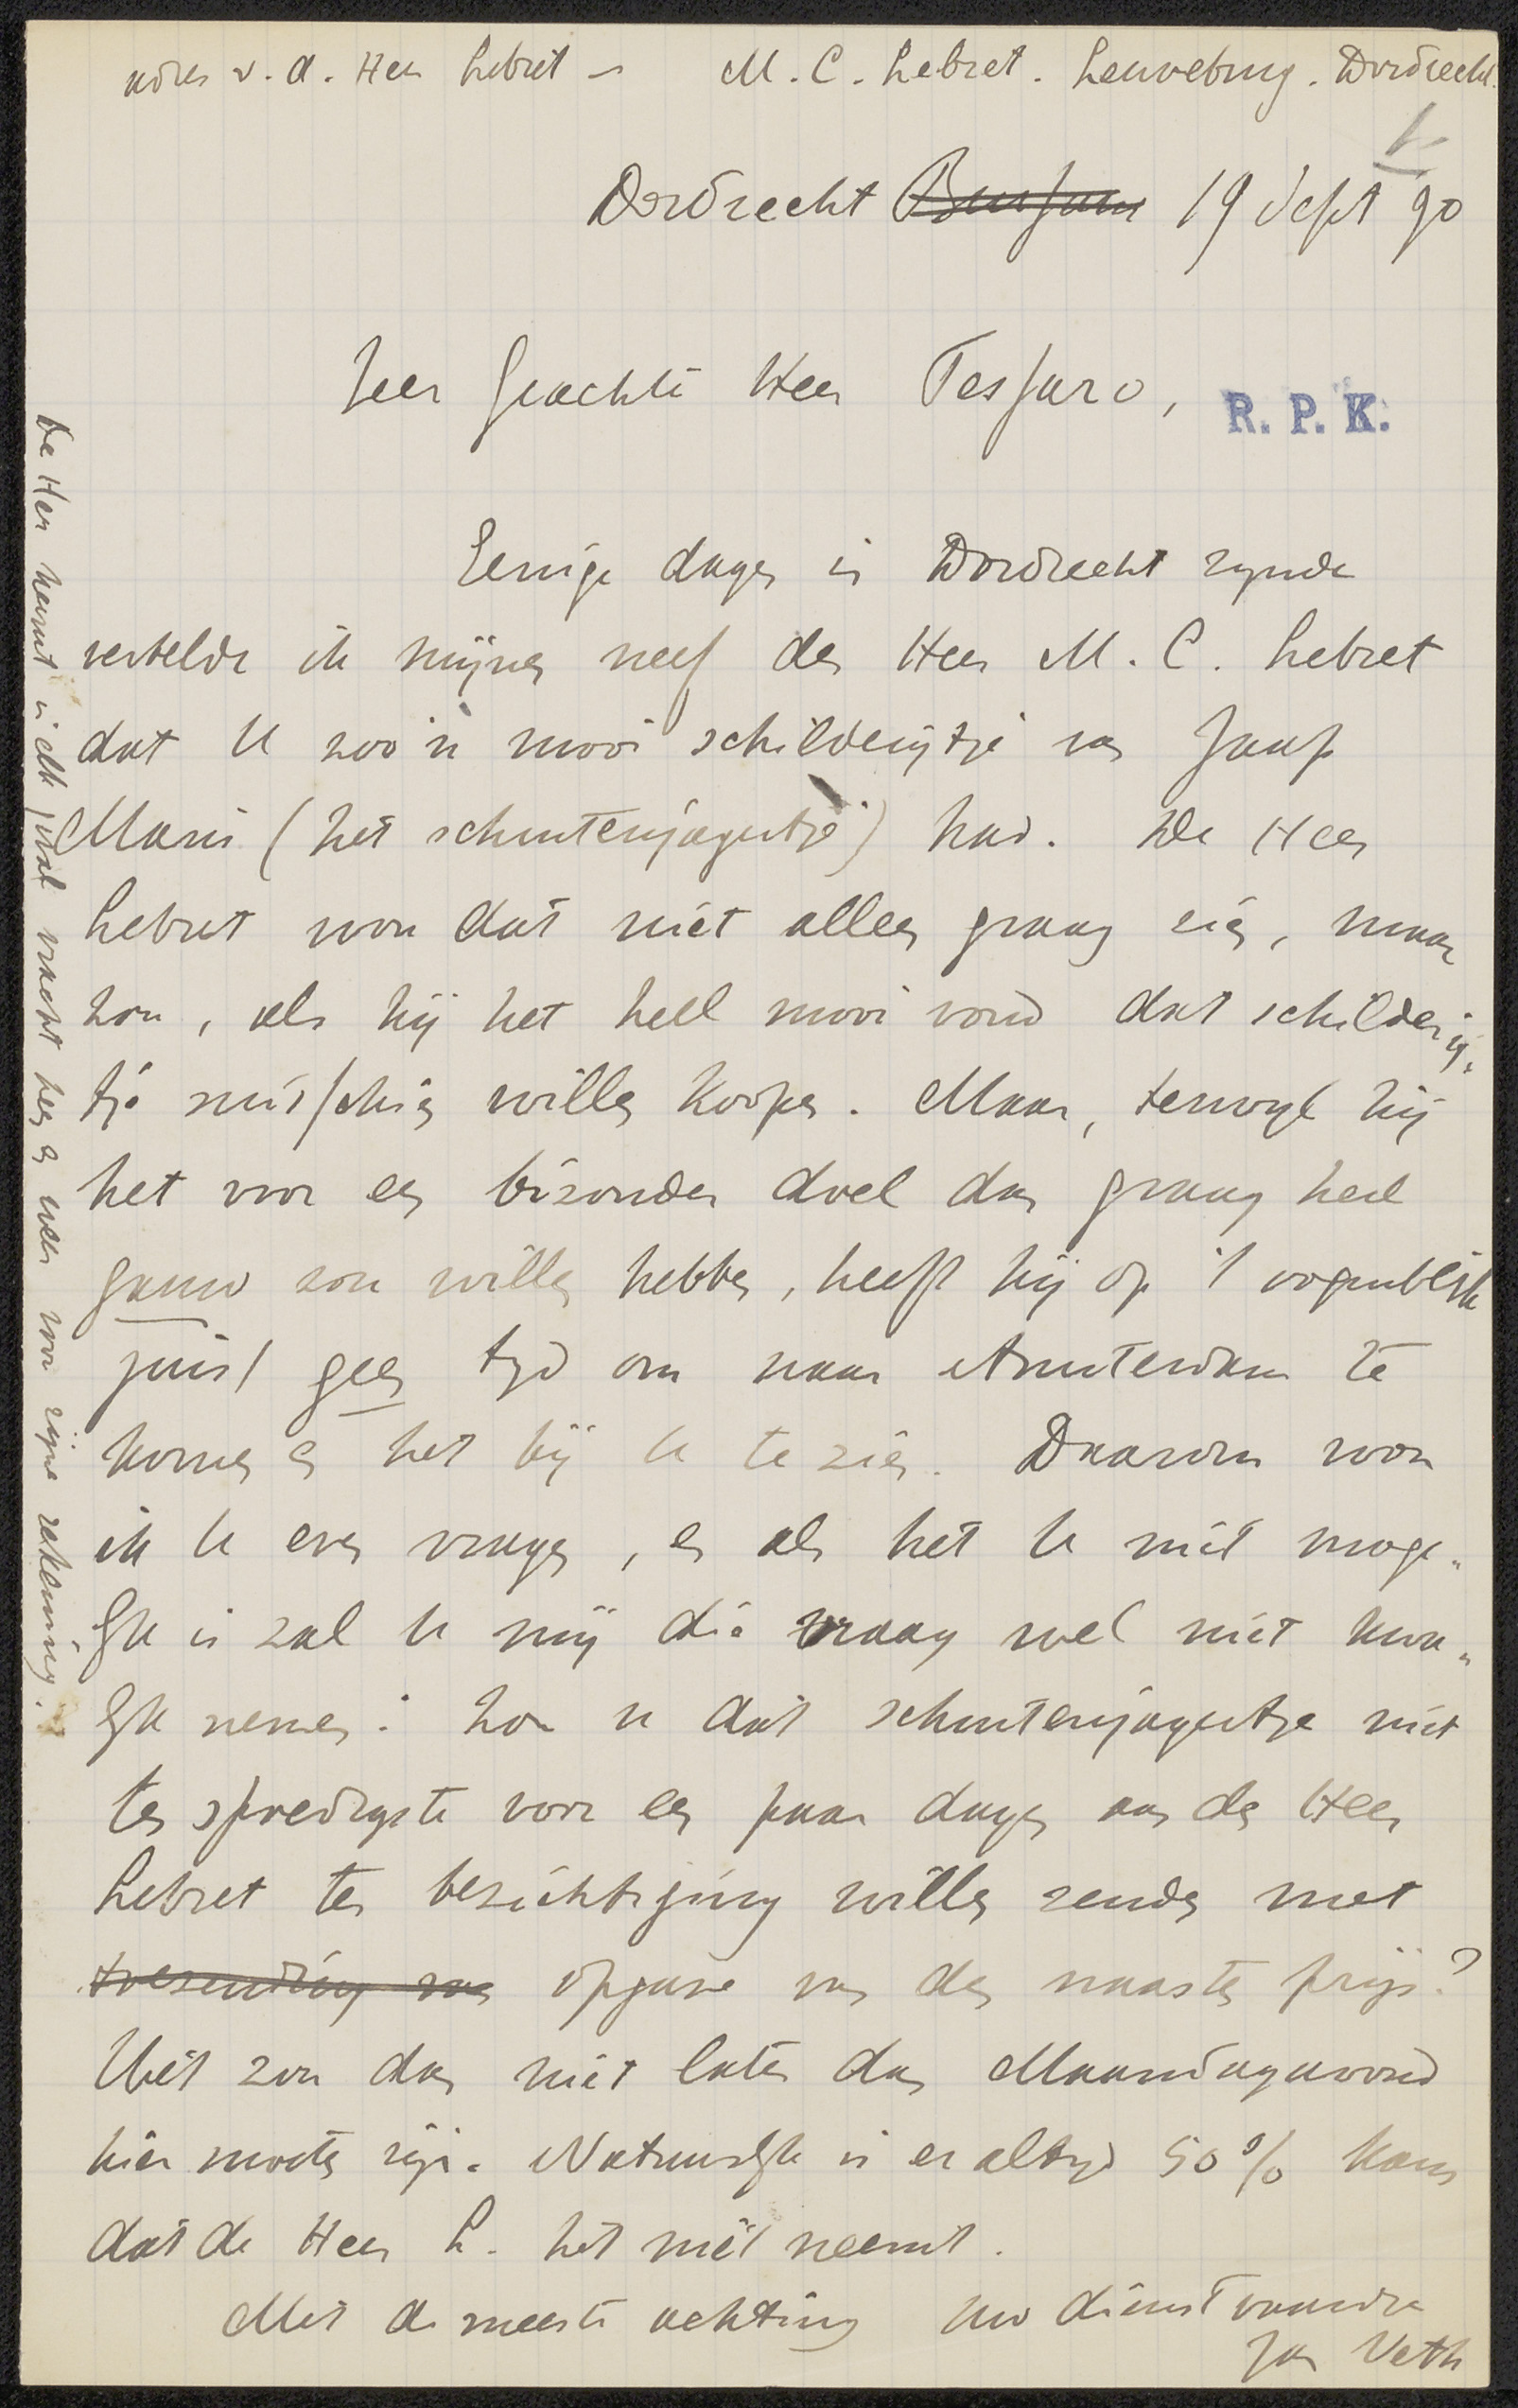 adres v. d. Heer Lebret – M. C. Lebret. Leuvebrug. Dordrecht.
1.
Dordrecht Bussum 19 Sept 90
Zeer Geachte Heer Tessaro,
R. P. K.
Eenige dagen in Dordrecht zynde
vertelde ik mijnen neef den Heer M. C. Lebret
dat U zoo'n mooi schilderijtje van Jaap
Maris (het schuitenjagertje) had. De Heer
Lebret wou dat niet alleen graag zien, maar
zou, als hij het heel mooi vond dat schilderij-
tje misschien willen koopen. Maar, terwyl hij
het voor een bizonder doel dan graag heel
gauw zou willen hebben, heeft hij op 't oogenblik
juist geen tyd om naar Amsterdam te
komen en het bij U te zien. Daarom wou
ik U even vragen, en als het U niet moge-
lyk is zal U mij die vraag wel niet kwa-
lyk nemen: Zou u dat schuitenjagertje niet
ten spoedigste voor een paar dagen aan den Heer
Lebret ter bezichtiging willen zenden met
toezending van opgave van den naasten prijs?
Het zou dan niet later dan Maandagavond
hier moeten zijn. Natuurlyk is er altyd 50% kans
dat de Heer L. het niet neemt.
Met de meeste achting Uw dienstvaardige
Jan Veth
De Heer neemt in elk geval vracht heen en weer voor zijne rekening.